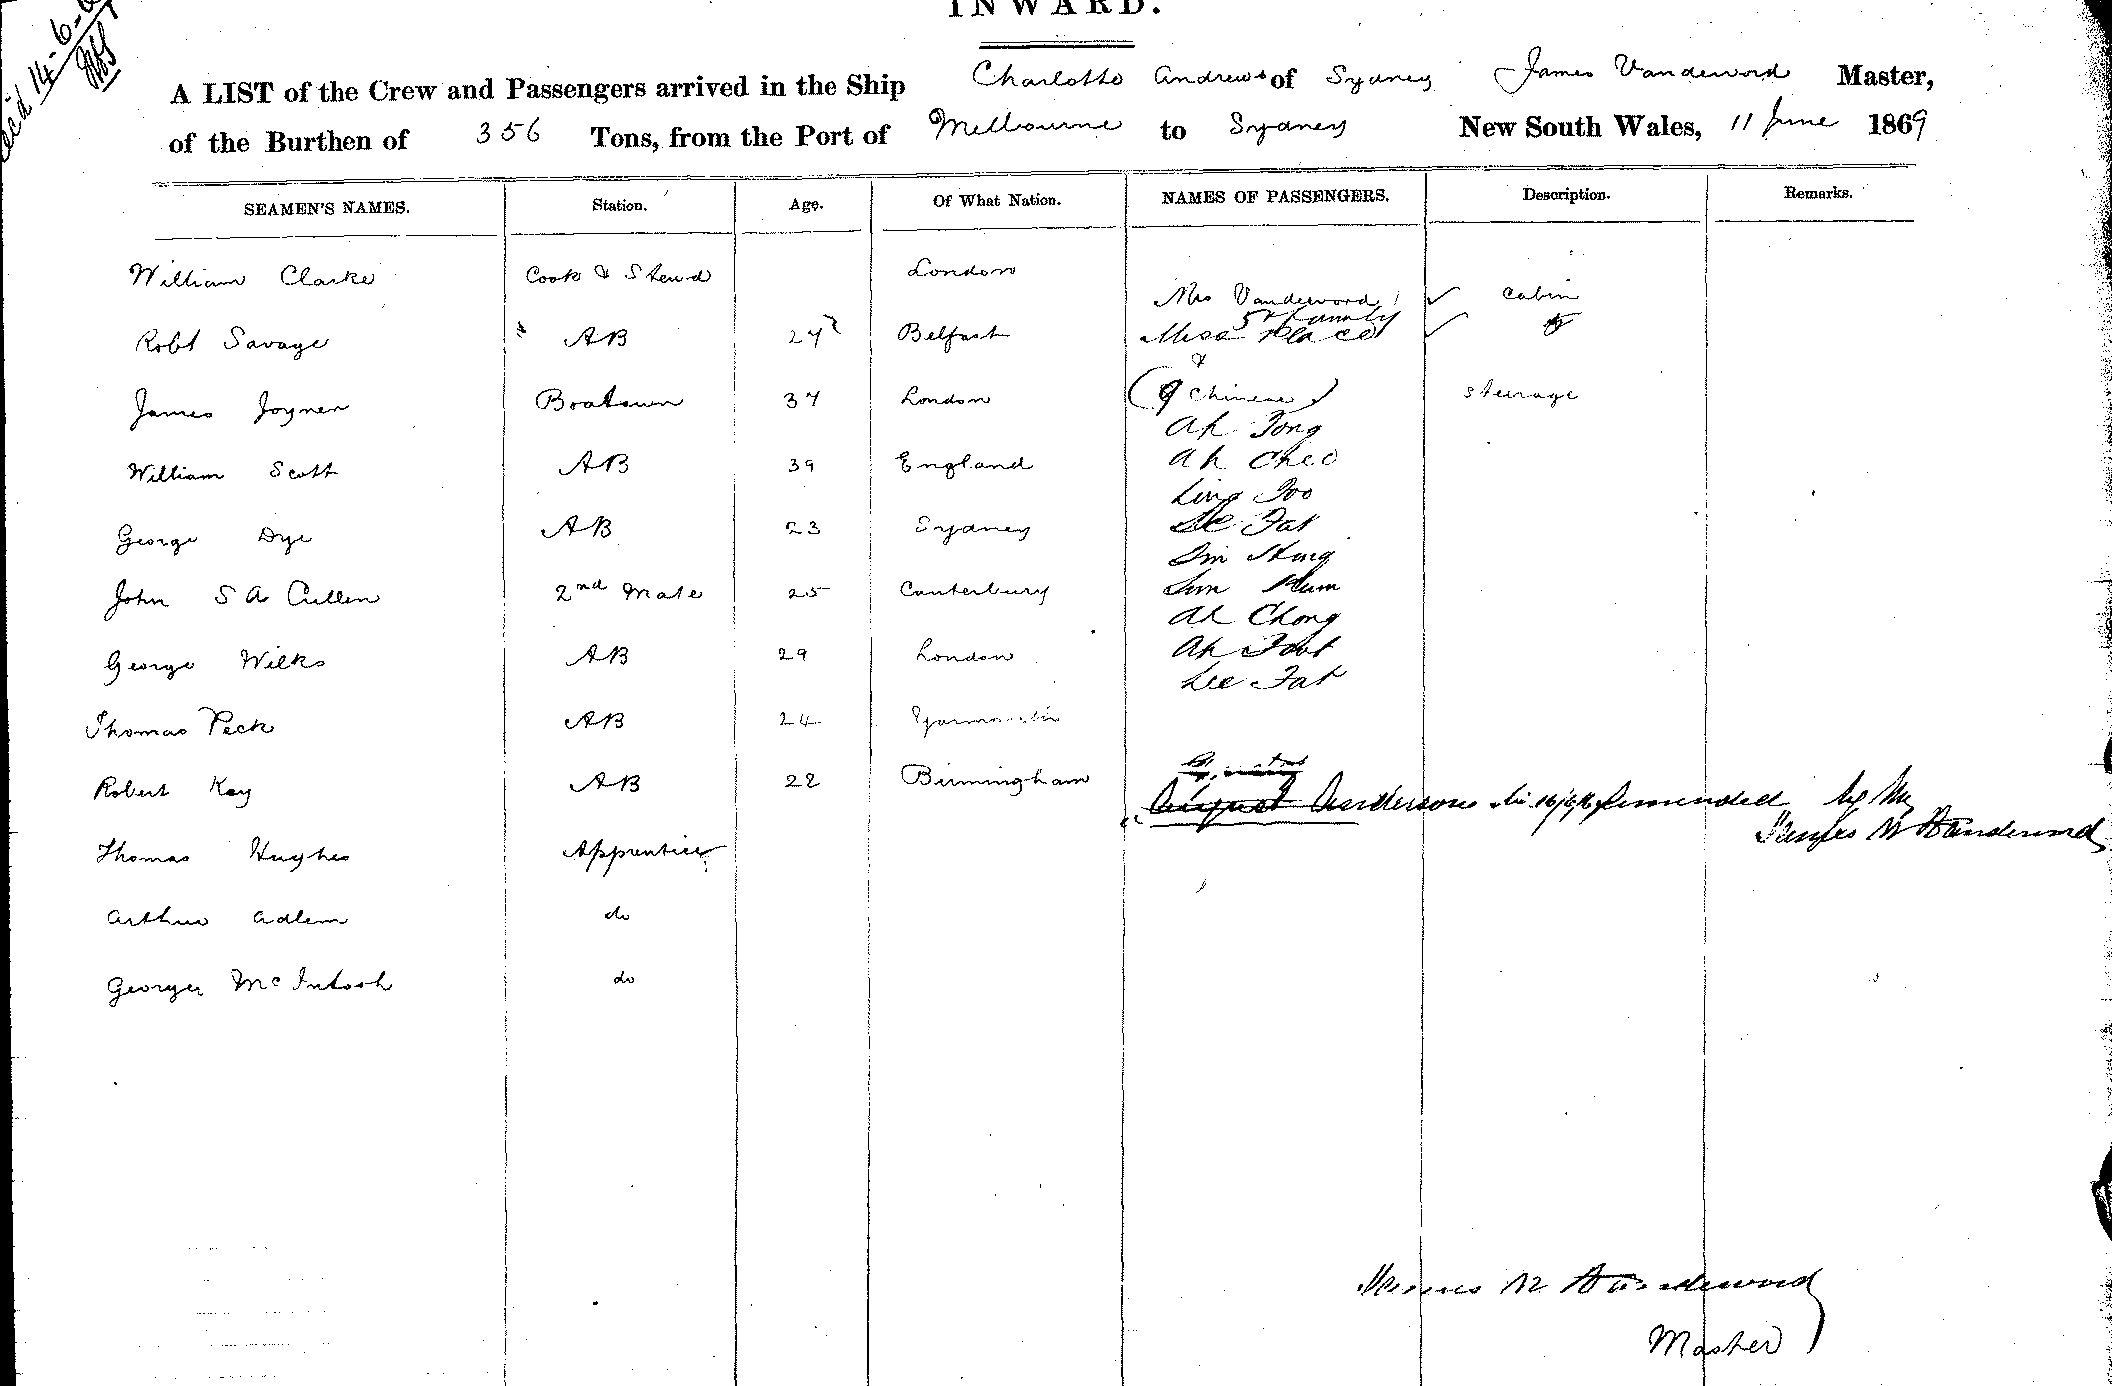 INWARD.
A LIST of the Crew and Passengers arrived in the Ship Charlotte Andrews of Sydney James Vandeword Master,
of the Burthen of 356 Tons, from the Port of Melbourne to Sydney New South Wales, 11 June 1869
SEAMEN'S NAMES. Station. Age. Of What Nation. NAMES OF PASSENGERS. Description. Remarks.
William Clarke Cook & Stewd London
Mrs Vandeword cabin
& family
Robt Savage AB 27 Belfast Miss Place
&
James Joyner Boatswn 37 London (9 Chinese) steerage
Ah Tong
William Scott AB 39 England Ah Cheo
Ling Foo
George Dye AB 23 Sydney Lee Fat
Sin Hung
John S A Cullen 2nd Mate 25 Canterbury Sun Hum
Ah Chong
George Wilks AB 29 London Ah Foot
Lee Fat
Thomas Peck AB 24 Yarmouth
Robert Kay AB 22 Birmingham
August Anderson by Me
James W Vandeword
Thomas Hughes Apprentice
Arthur Adlem do
George McIntosh do
James W Vandeword
Master